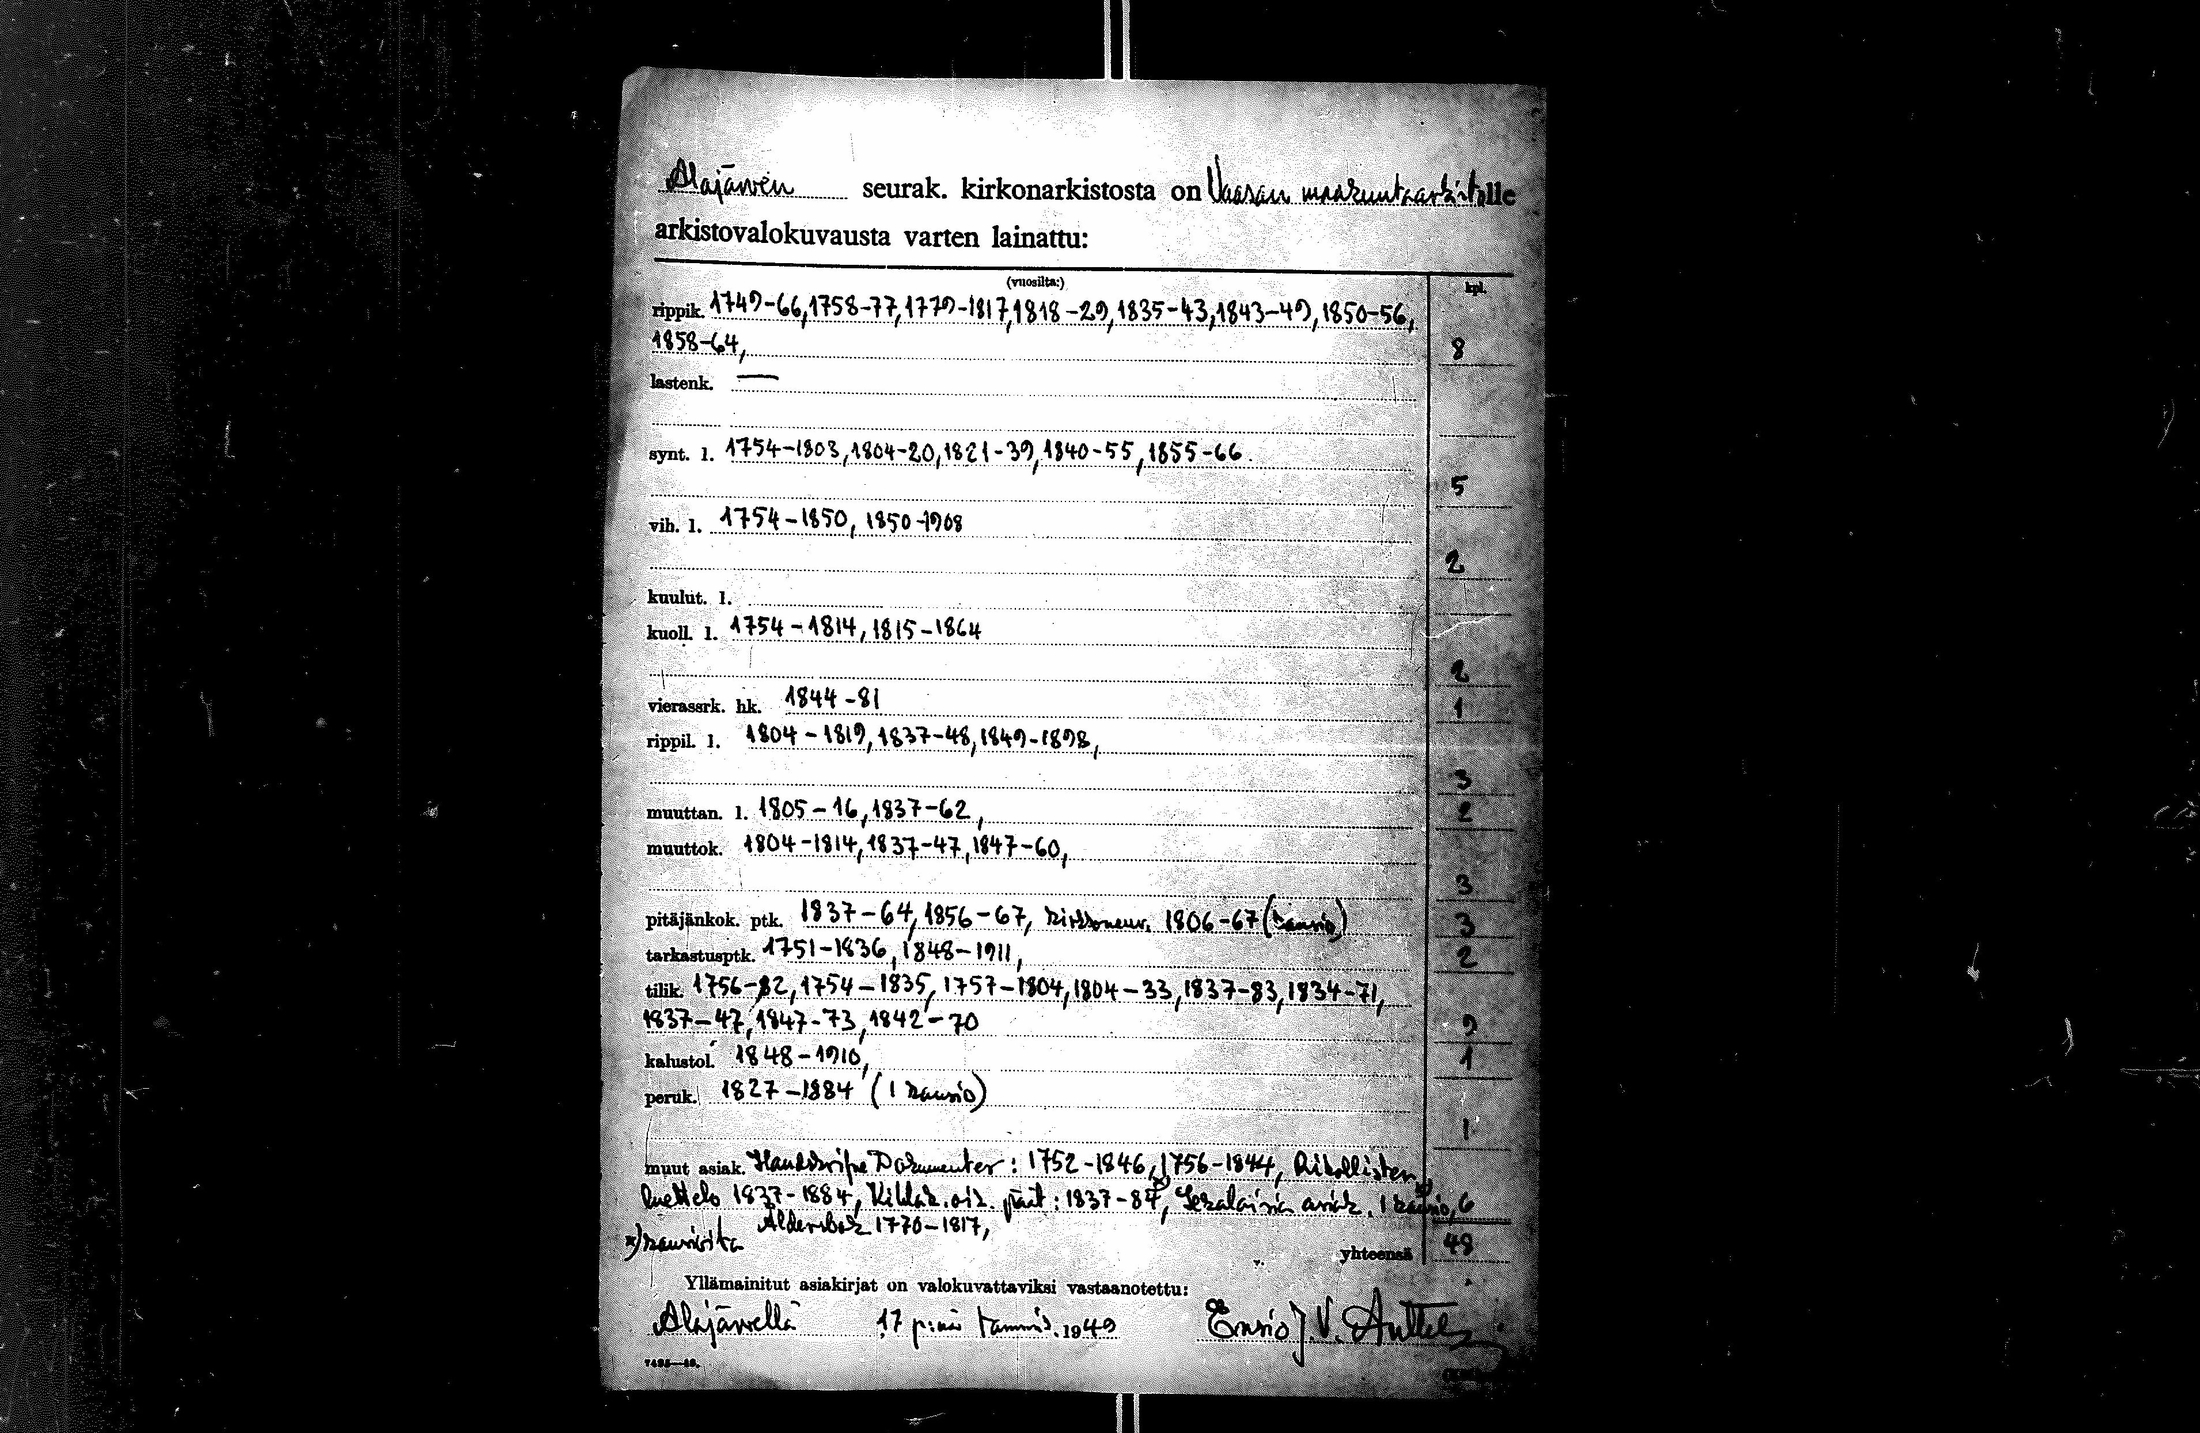 Alajärven seurak. kirkonarkistosta on Vaasan maakuntaarkistolle
arkistovalokuvausta varten lainattu:
(vuosilta:) kpl.
rippik. 1749-66, 1758-77, 1779-1817, 1818-29, 1835-43, 1843-49, 1850-56,
1858-64, 8
lastenk. —
synt. l. 1754-1803, 1804-20, 1821-39, 1840-55, 1855-66.
5
vih. l. 1754-1850, 1850-1908
2
kuulut. l.
kuoll. l. 1754-1814, 1815-1864
2
vierassrk. hk. 1844-81 1
rippil. l. 1804-1819, 1837-48, 1849-1898,
3
muuttan. l. 1805-16, 1837-62, 2
muuttok. 1804-1814, 1837-47, 1847-60,
3
pitäjänkok. ptk. 1837-64, 1856-67, kirkkoneuv. 1806-67 (kansio) 3
tarkastusptk. 1751-1836, 1848-1911, 2
tilik. 1756-82, 1754-1835, 1757-1804, 1804-33, 1837-83, 1834-71,
1837-47, 1847-73, 1842-70 9
kalustol. 1848-1910, 1
peruk. 1827-1884 (1 kansio)
1
muut asiak. Handskrifne Dokumenter: 1752-1846, 1756-1844, Rikollisten
luettelo 1837-1884, Kihlak. oik. päät: 1837-84 x), Sekalaisia asiak. 1 kansio, 6
Äldersbok 1770-1817,
x) kansioita
yhteensä 48
Yllämainitut asiakirjat on valokuvattaviksi vastaanotettu:
Alajärvellä 17 p:nä tammik. 1949 Ensio J. V. Anttila